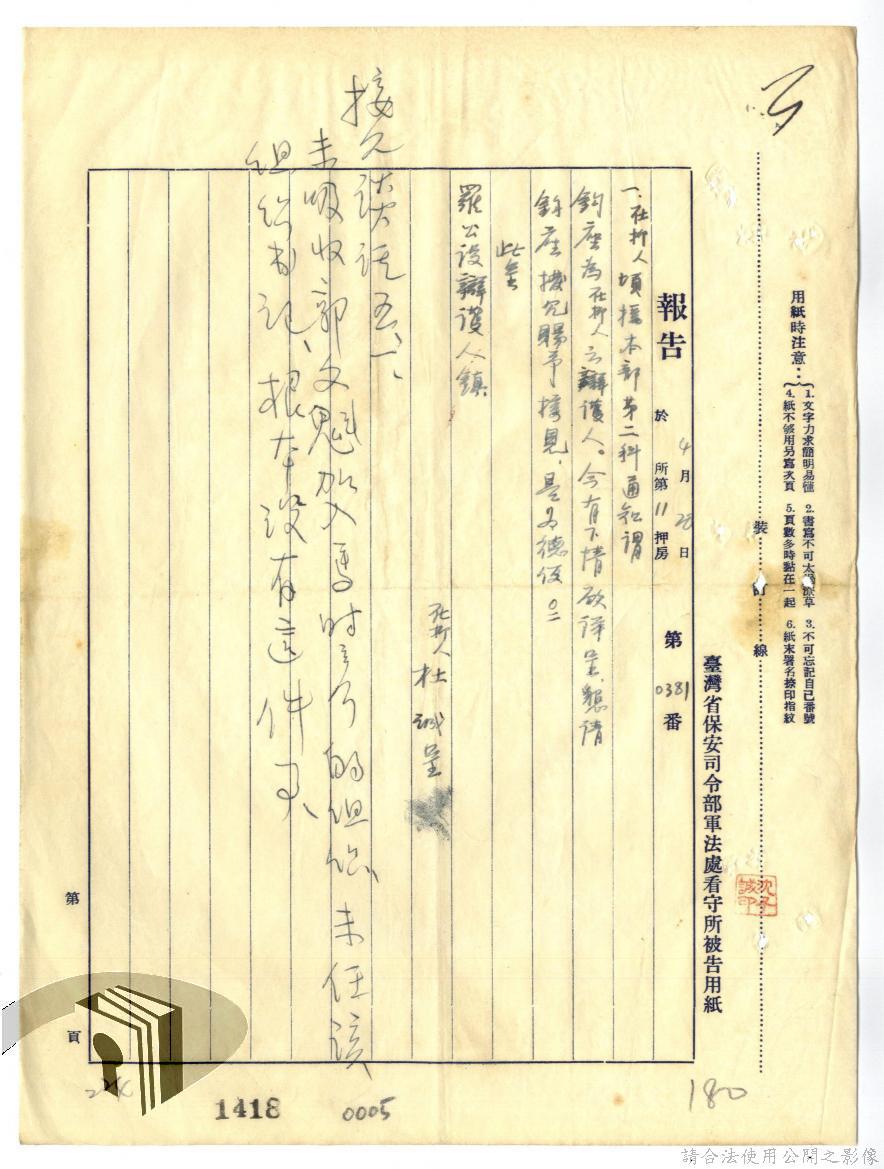 用紙時注意：
1. 文字力求簡明易懂 2. 書寫不可太過潦草 3. 不可忘記自己番號
4. 紙不够用另寫次頁 5. 頁數多時點在一起 6. 紙末署名捺印指紋
裝訂線
臺灣省保安司令部軍法處看守所被告用紙
沈子誠印
報告 於 4月28日 所第11押房 第0381番
一、在押人頃接本部第二科通知謂
鈞座為在押人之辯護人。今有下情欲詳呈、懇請
鈞座撥冗賜予接見、是為德便。
此呈
羅公設辯護人鎮
在押人 杜誠呈
接見談話五、一、
未吸收郭文魁加入馬時彥的組織、未任該
組織書記、根本沒有這件事
第
頁
224
1418
0005
180
請合法使用公開之影像